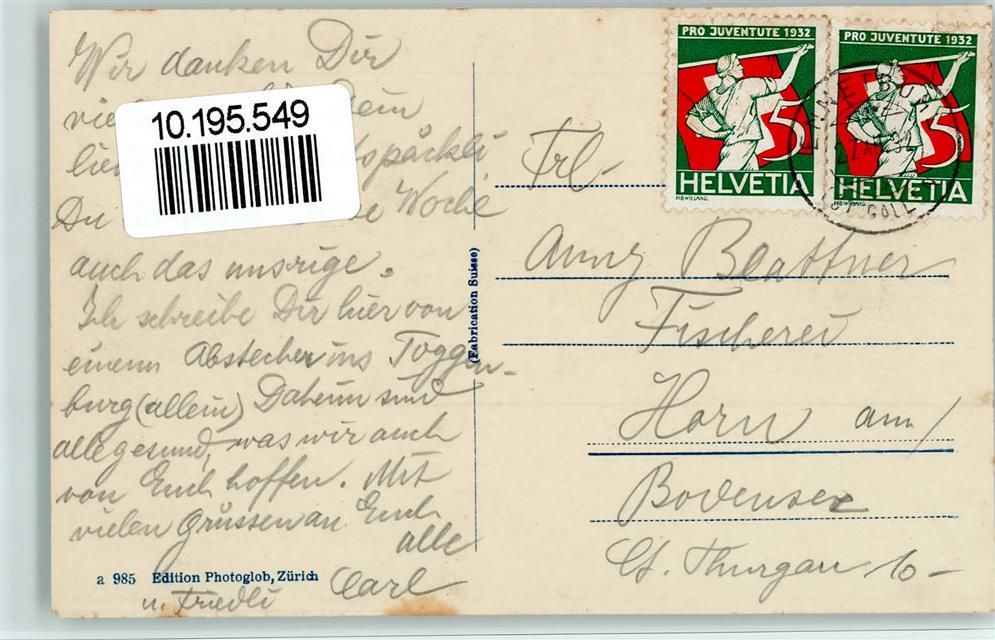 Wir danken Dir
Dein
päckli
Du Woche
auch das unsrige.
Ich schreibe Dir hier von
einem Abstecher ins Toggen-
burg (allein) Daheim sind
alle gesund, was wir auch
von Euch hoffen. Mit
vielen Grüssen an Euch
alle
Carl
u. Friedli
a 985 Edition Photoglob, Zürich
10.195.549
(Fabrication Suisse)
PRO JUVENTUTE 1932
5
HELVETIA
PRO JUVENTUTE 1932
5
HELVETIA
Frl.
Anny Blattner
Fischerei
Horn am/
Bodensee
Ct. Thurgau